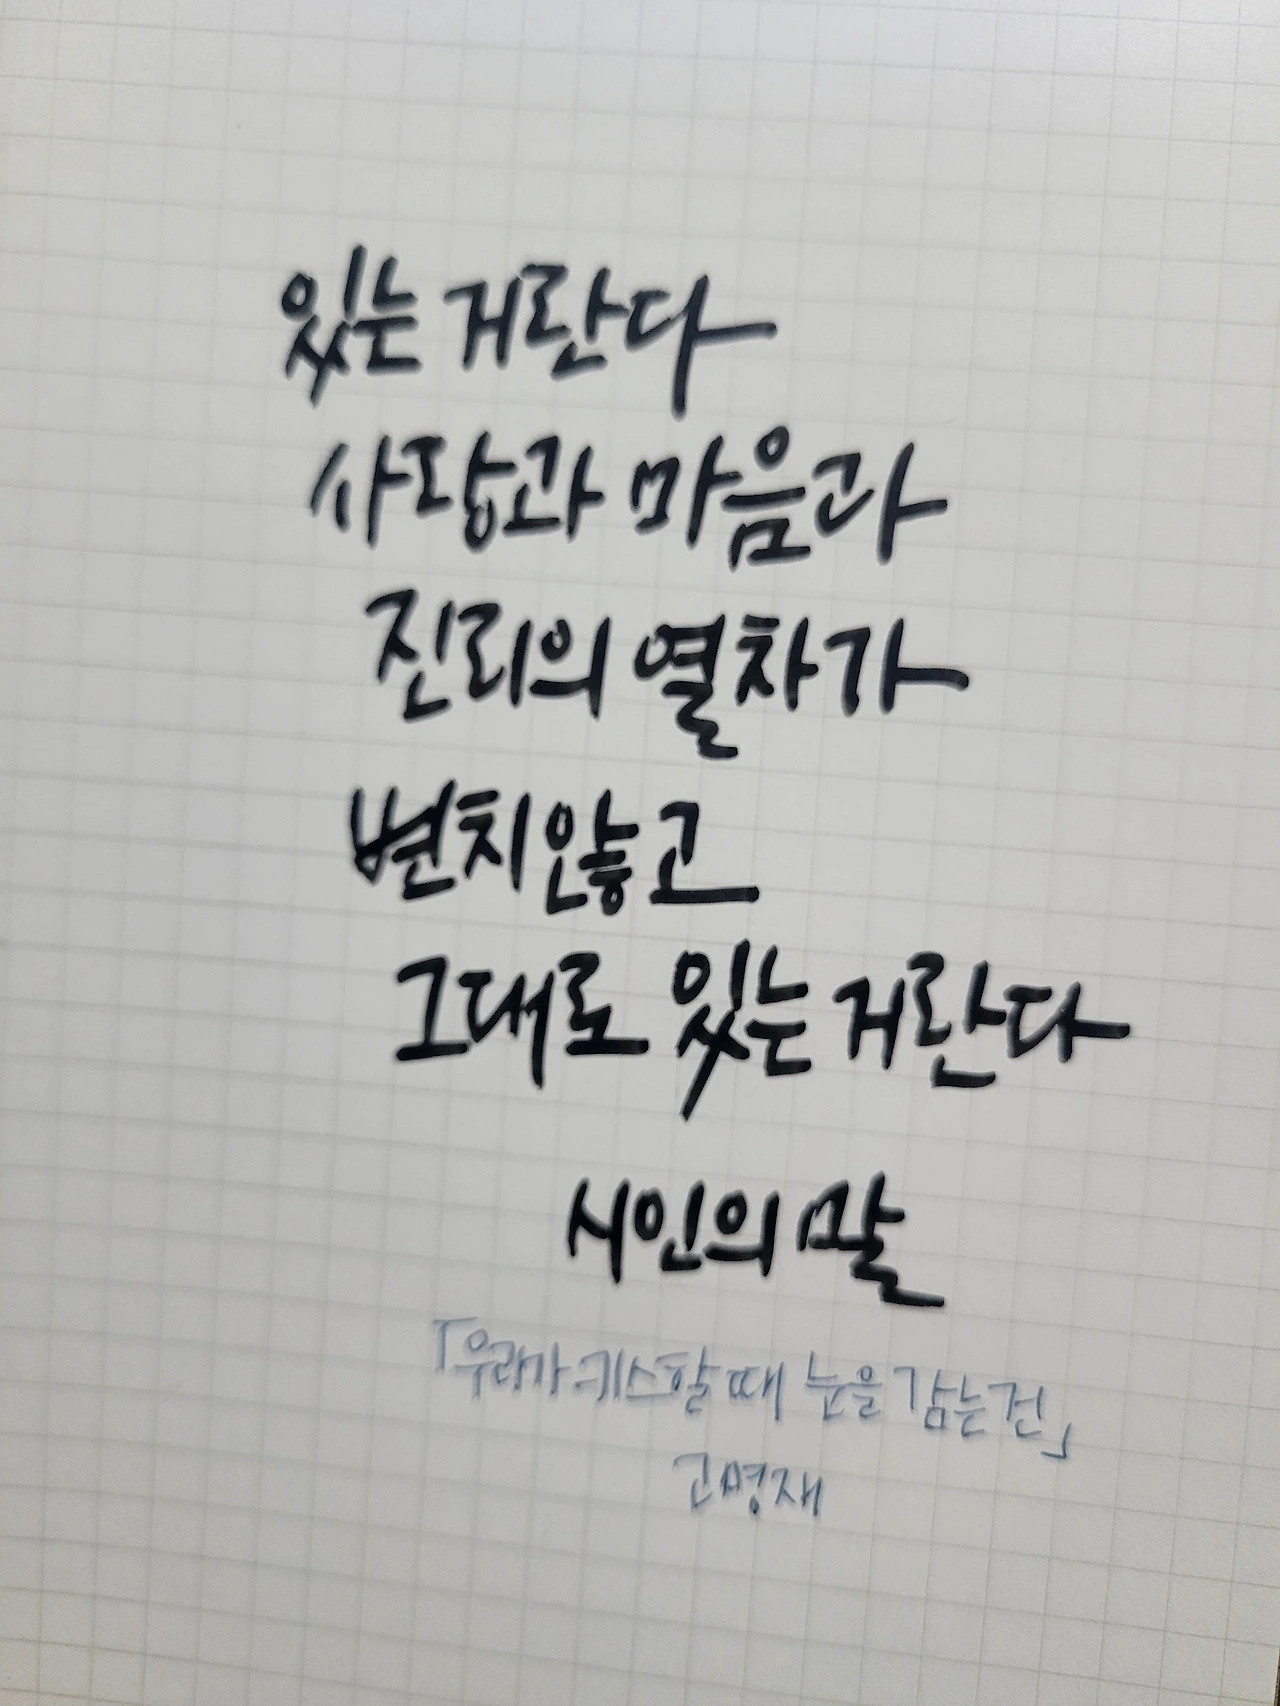 있는 거란다
사랑과 마음과
진리의 열차가
변치않고
그대로 있는 거란다
시인의 말
「우리가 키스할 때 눈을 감는 건」
고명재